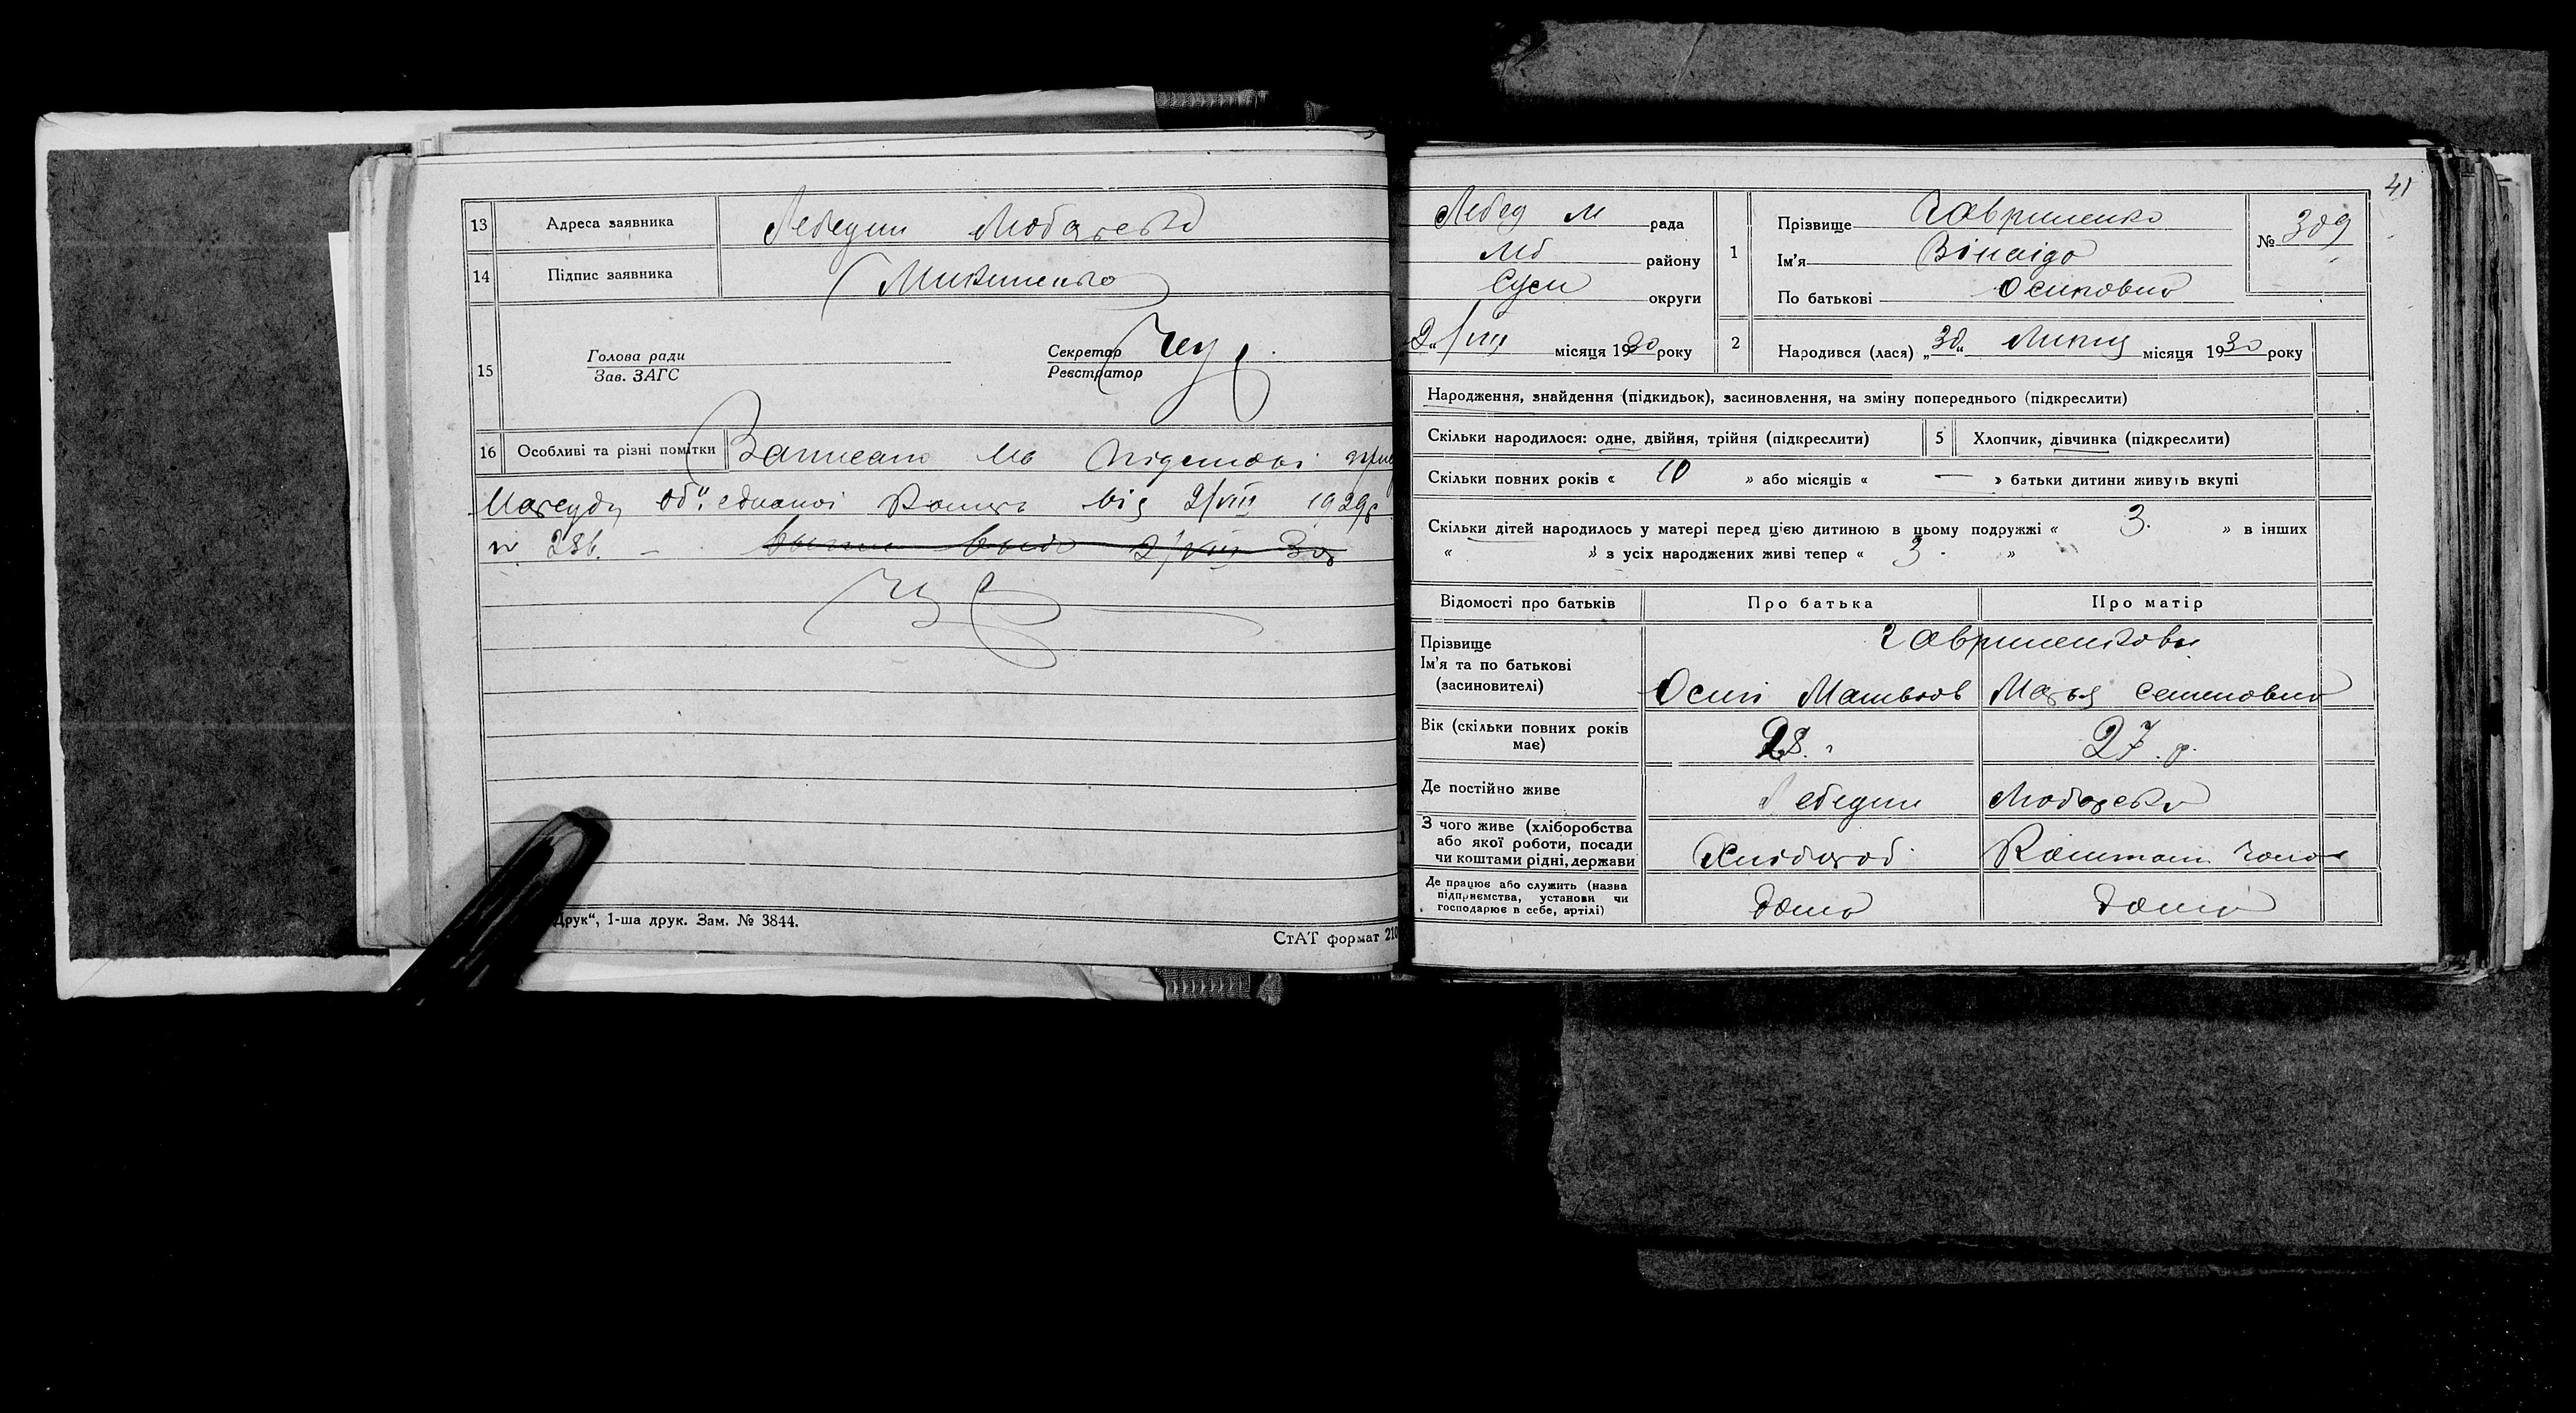 13 Адреса заявника Лебедин Любарська
14 Підпис заявника Микитенко
15 Голова ради
Зав. ЗАГС
Секретар
Реєстратор
16 Особливі та різні помітки Записано на підставі
об'єднаної від 2/VIII 1929р
№ 286. –
Друк“, 1-ша друк. Зам. № 3844.
СтАТ формат 210
41
Лебед м рада
Леб району
Сум округи
2 „ /VIII місяця 1930 року
1 Прізвище Гавриленко
Ім'я Зінаіда
По батькові Осиповна
№ 309
2 Народився (лася) „30“ Липня місяця 1930 року
Народження, знайдення (підкидьок), засиновлення, на зміну попереднього (підкреслити)
Скільки народилося: одне, двійня, трійня (підкреслити) 5 Хлопчик, дівчинка (підкреслити)
Скільки повних років « 10 » або місяців « — » батьки дитини живуть вкупі
Скільки дітей народилось у матері перед цією дитиною в цьому подружжі « 3. » в інших
« » з усіх народжених живі тепер « 3 - »
Відомості про батьків Про батька Про матір
Прізвище
Ім'я та по батькові
(засновителі)
Гавриленкови
Осип Матвіов Марья Семеновна
Вік (скільки повних років
має) 28. 27. р.
Де постійно живе Лебедин Любарська
З чого живе (хліборобства
або якої роботи, посади
чи коштами рідні, держави
Хлібороб Коштами чолов
Де працює або служить (назва
підприємства, установи чи
господарює в себе, артілі)
дома дома